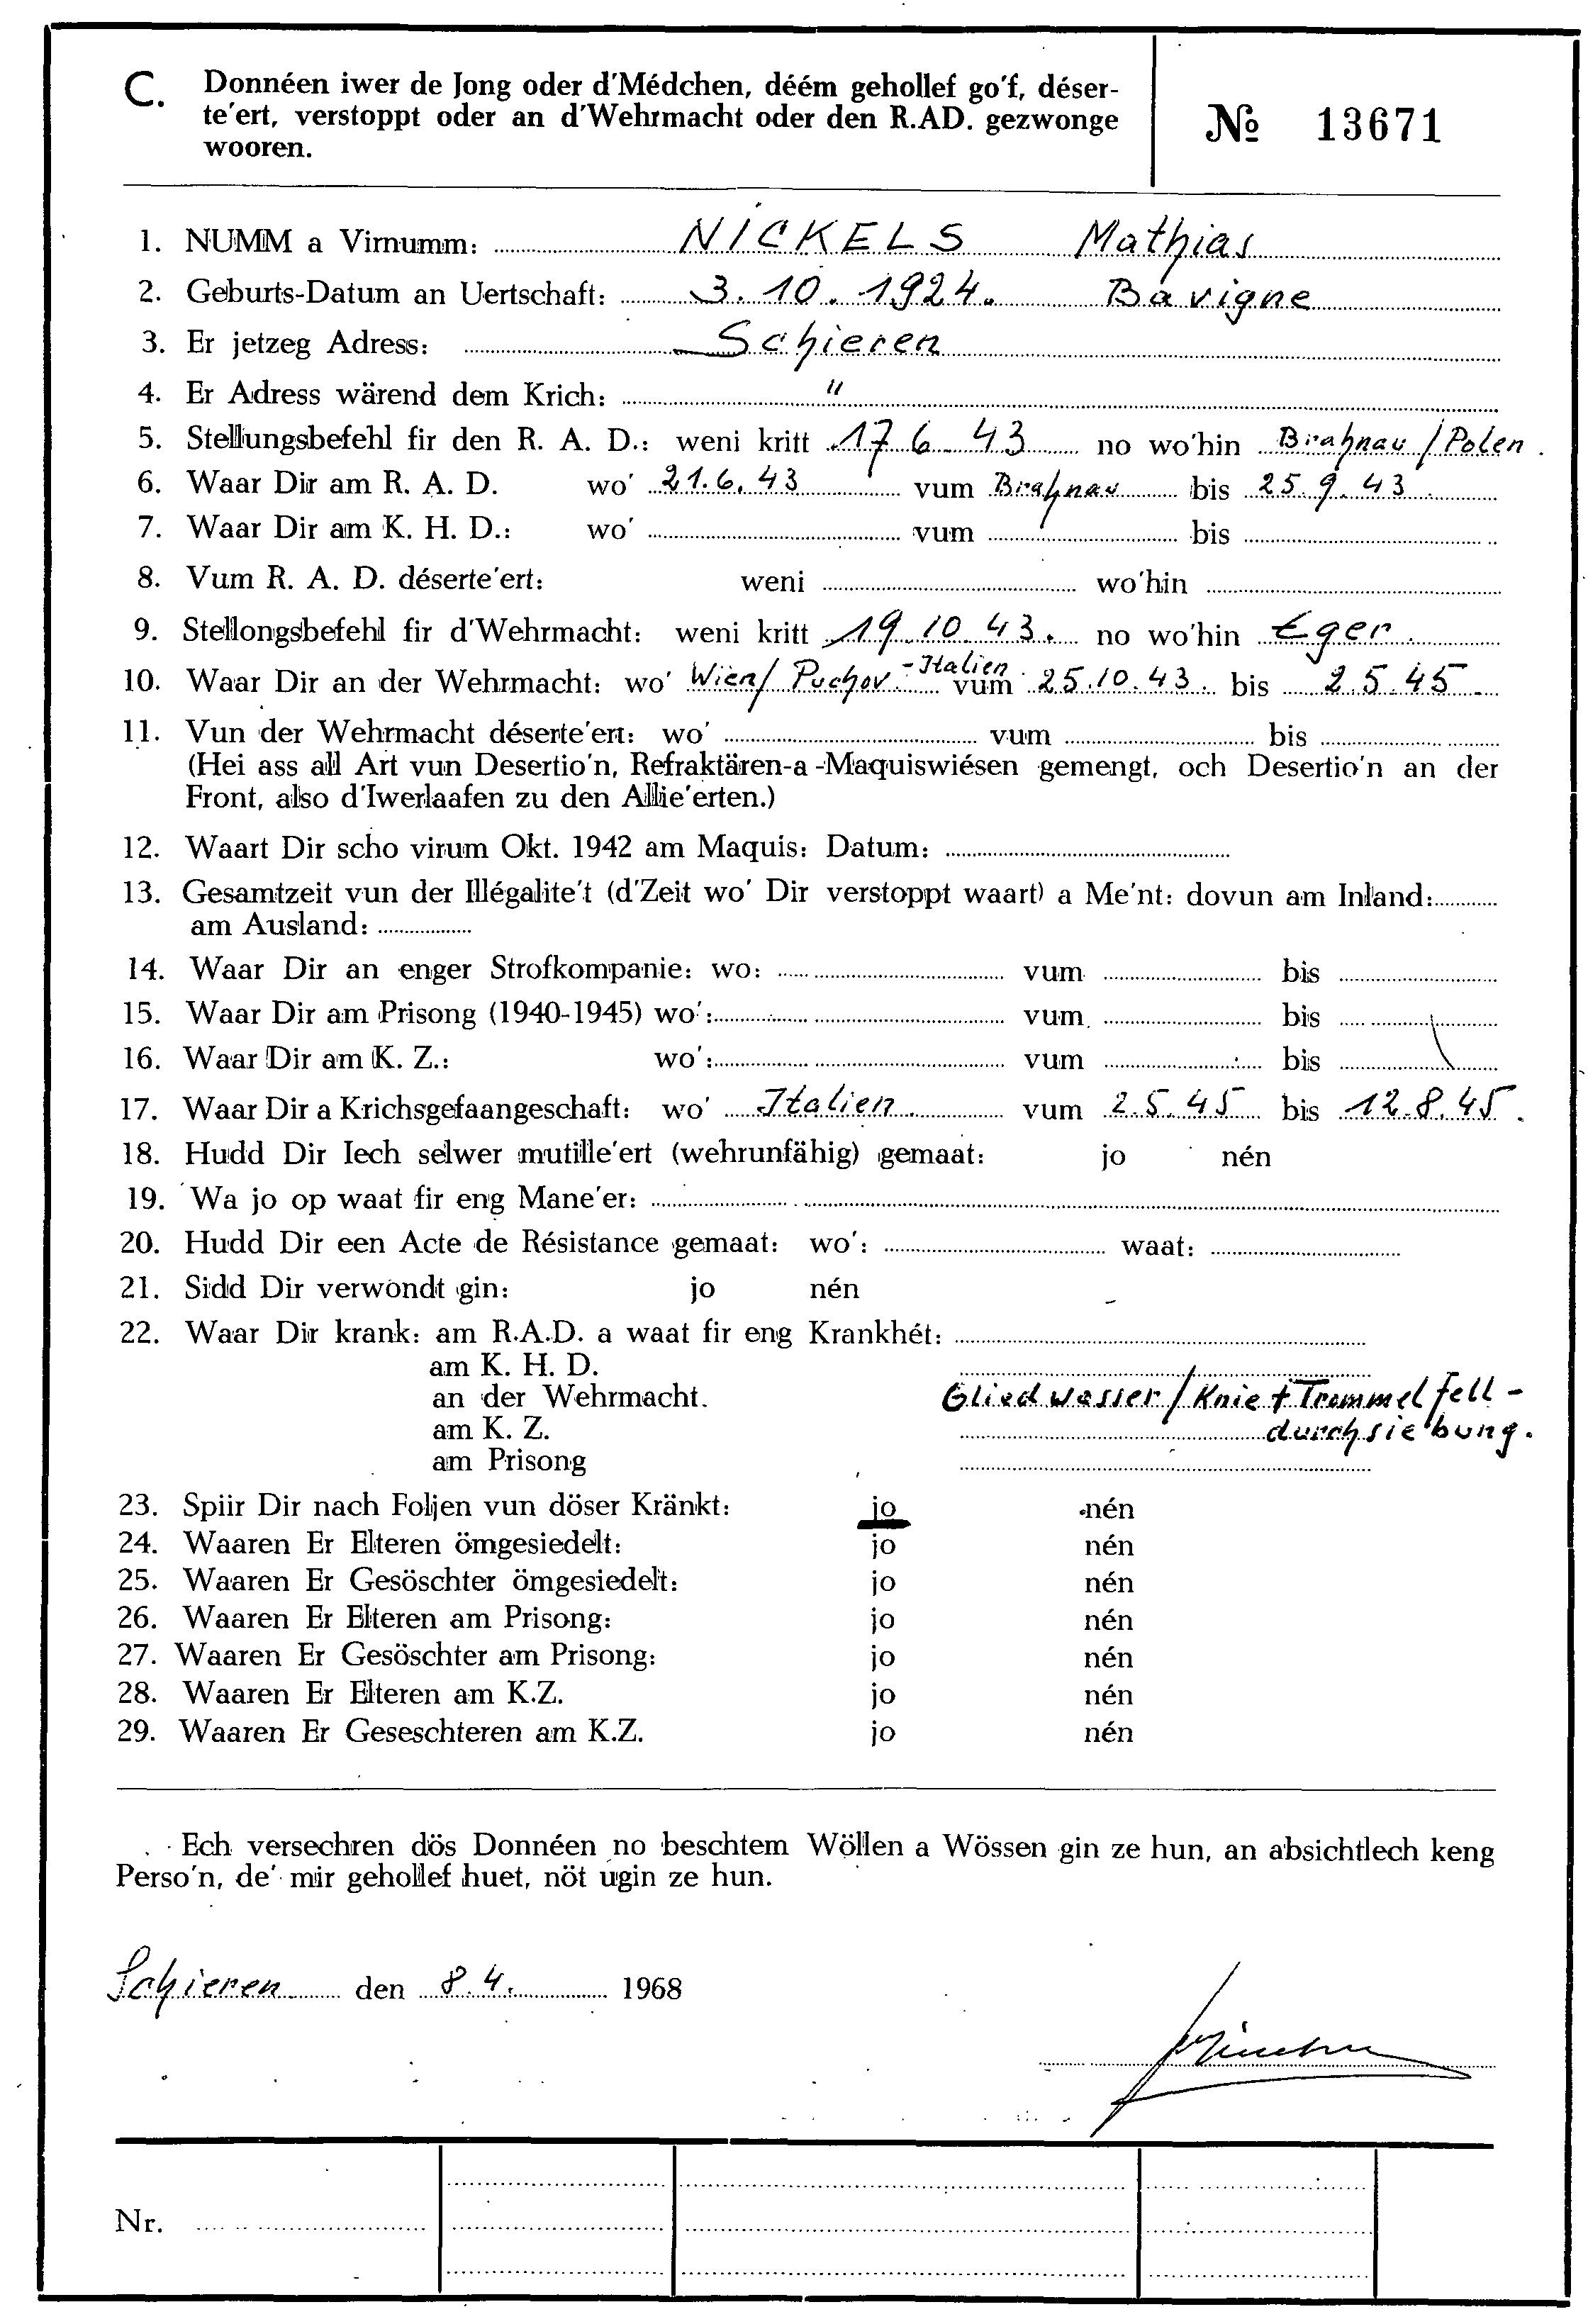 C. Donnéen iwer de Jong oder d'Médchen, déém gehollef go'f, déser-
te'ert, verstoppt oder an d'Wehrmacht oder den R.AD. gezwonge
wooren.
№ 13671
1. NUMM a Virnumm: NICKELS Mathias
2. Geburts-Datum an Uertschaft: 3.10.1924. Bavigne
3. Er jetzeg Adress: Schieren
4. Er Adress wärend dem Krich: "
5. Stellungsbefehl fir den R. A. D.: weni kritt 17 6 43 no wo'hin Brahnau / Polen.
6. Waar Dir am R. A. D. wo' 21.6.43 vum Brahnau bis 25.9.43.
7. Waar Dir am K. H. D.: wo' vum bis
8. Vum R. A. D. déserte'ert: weni wo'hin
9. Stellongsbefehl fir d'Wehrmacht: weni kritt 19.10.43. no wo'hin Eger.
10. Waar Dir an der Wehrmacht: wo' Wien / Puchov - Italien vum 25.10.43. bis 2.5.45.
11. Vun der Wehrmacht déserte'ert: wo' vum bis
(Hei ass all Art vun Desertio'n, Refraktären-a-Maquiswiésen gemengt, och Desertio'n an der
Front, also d'Iwerlaafen zu den Allie'erten.)
12. Waart Dir scho virum Okt. 1942 am Maquis: Datum:
13. Gesamtzeit vun der Illégalite't (d'Zeit wo' Dir verstoppt waart) a Me'nt: dovun am Inland:
am Ausland:
14. Waar Dir an enger Strofkompanie: wo: vum bis
15. Waar Dir am Prisong (1940-1945) wo': vum bis
16. Waar Dir am K. Z.: wo': vum bis
17. Waar Dir a Krichsgefaangeschaft: wo' Italien. vum 2.5.45 bis 12.8.45.
18. Hudd Dir Iech selwer mutille'ert (wehrunfähig) gemaat: jo nén
19. Wa jo op waat fir eng Mane'er:
20. Hudd Dir een Acte de Résistance gemaat: wo': waat:
21. Sidd Dir verwondt gin: jo nén
22. Waar Dir krank: am R.A.D. a waat fir eng Krankhét:
am K. H. D.
an der Wehrmacht. Gliedwasser / Knie + Trommelfell-
am K. Z. durchsiebung.
am Prisong
23. Spiir Dir nach Foljen vun döser Kränkt: jo nén
24. Waaren Er Elteren ömgesiedelt: jo nén
25. Waaren Er Gesöschter ömgesiedelt: jo nén
26. Waaren Er Elteren am Prisong: jo nén
27. Waaren Er Gesöschter am Prisong: jo nén
28. Waaren Er Elteren am K.Z. jo nén
29. Waaren Er Geseschteren am K.Z. jo nén
Ech versechren dös Donnéen no beschtem Wöllen a Wössen gin ze hun, an absichtlech keng
Perso'n, de' mir gehollef huet, nöt ugin ze hun.
Schieren den 8.4. 1968
Nr.